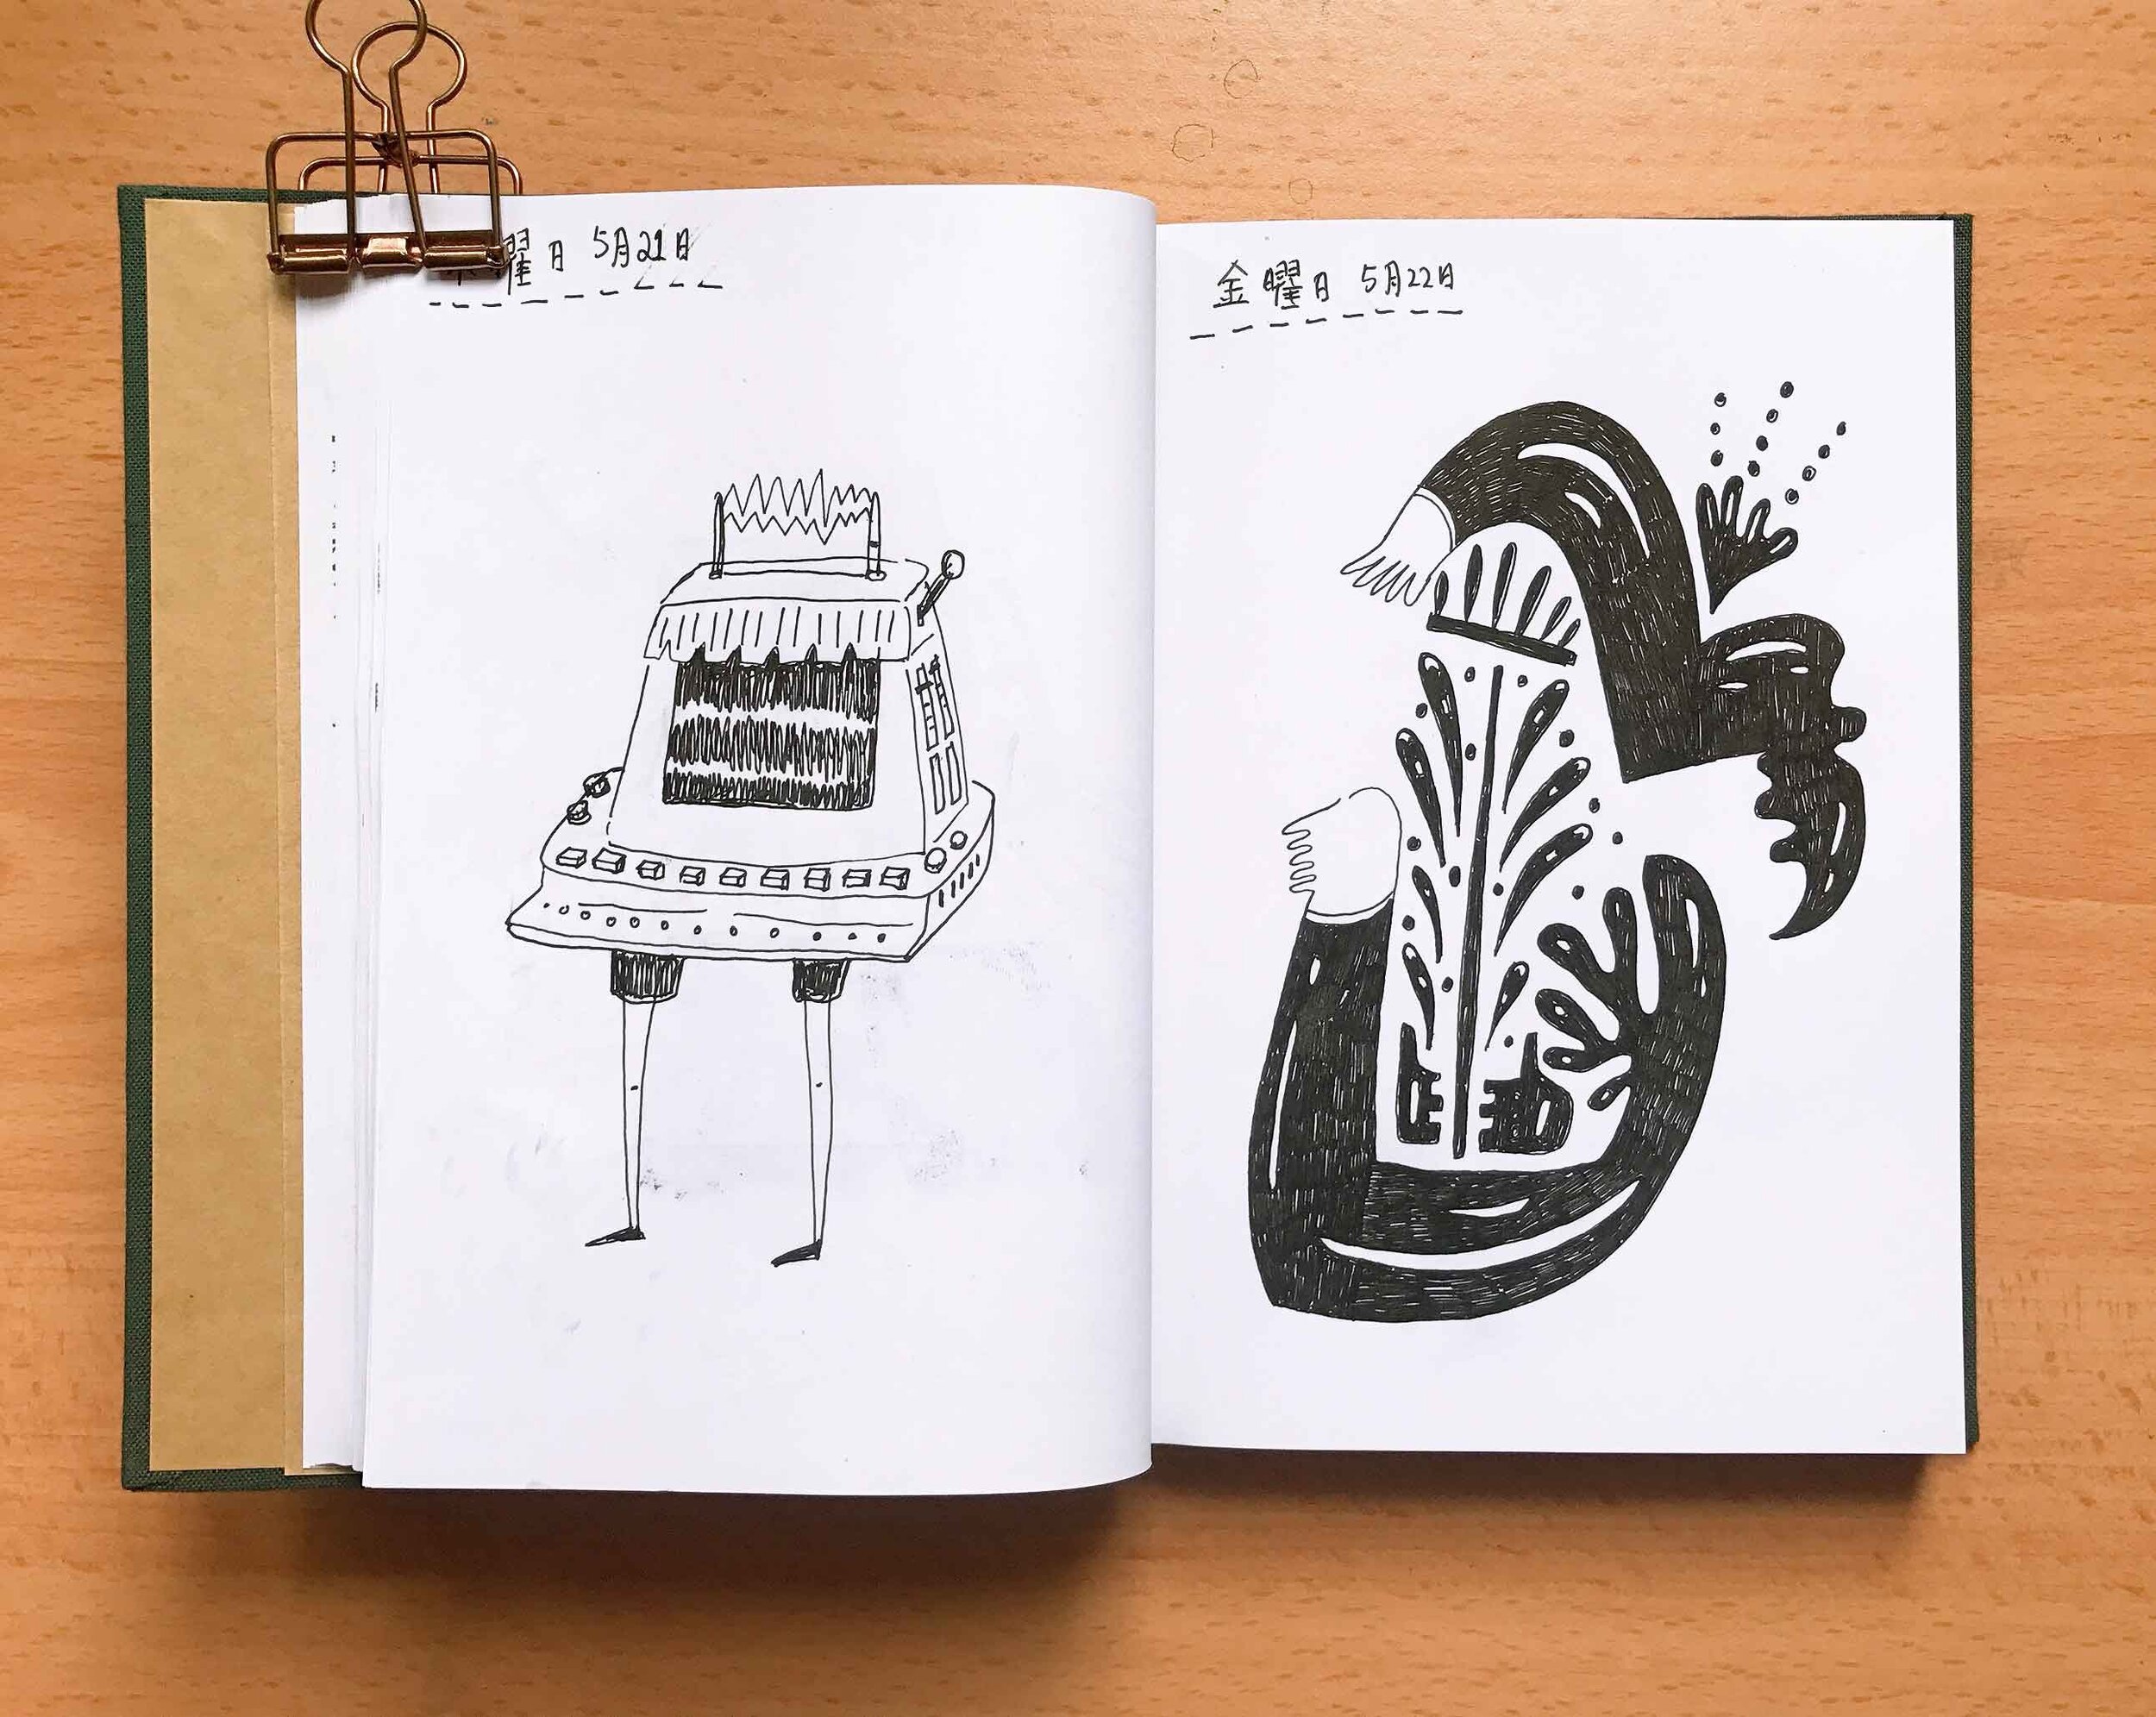 曜日 5月21日
金曜日 5月22日